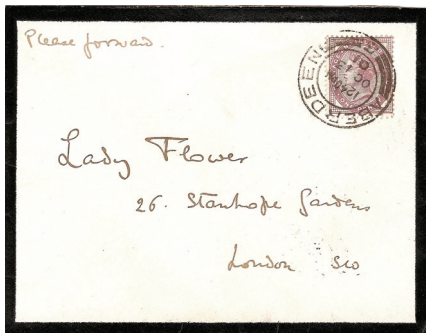 Please forward.
ABERDEEN
OC
Lady Flower
26. Stanhope Gardens
London SW